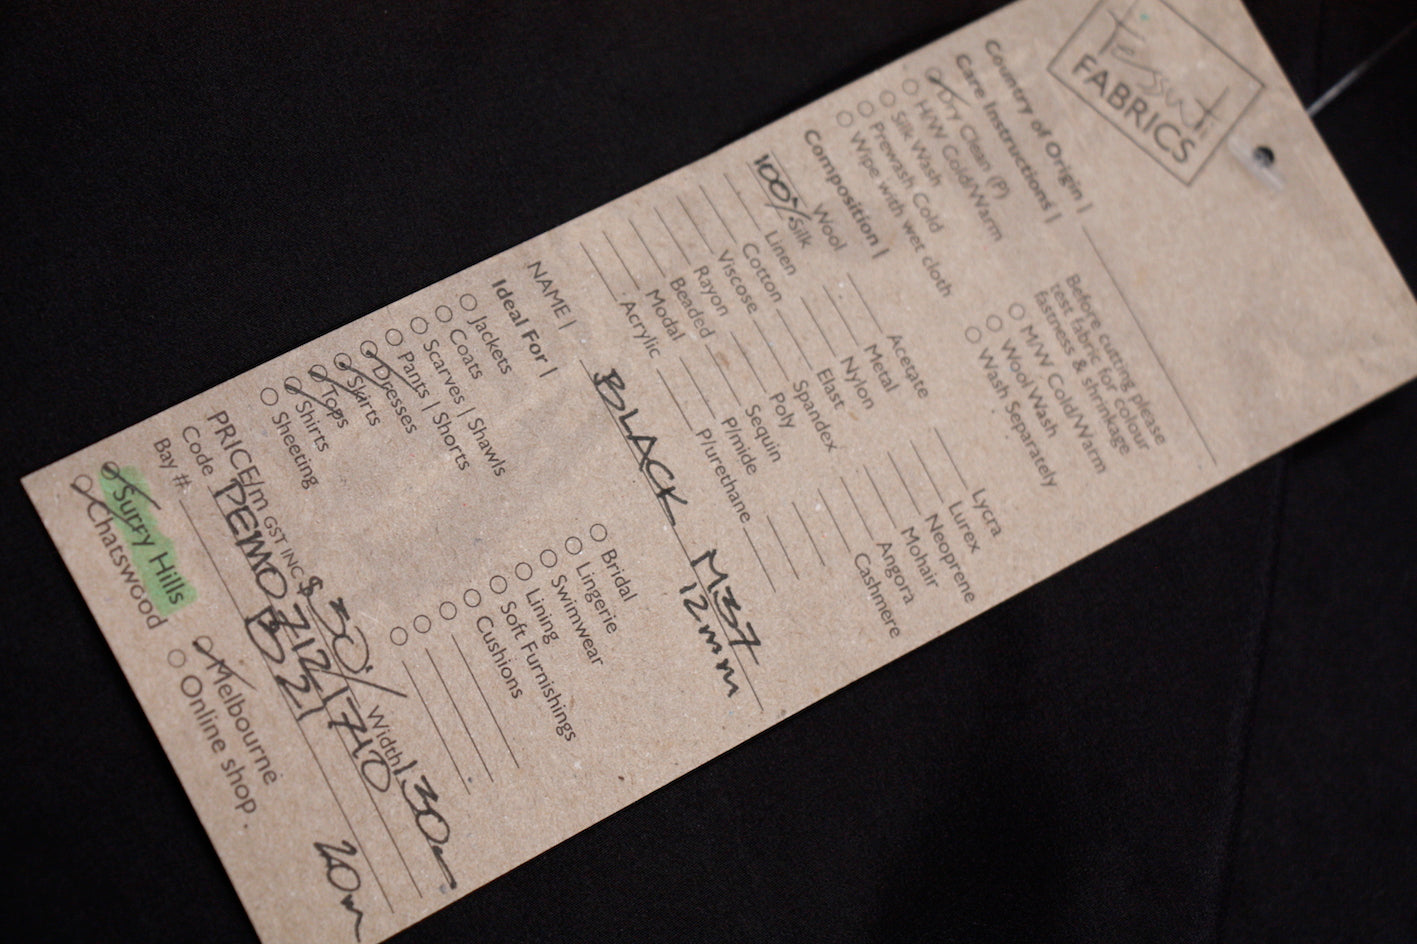 Tessuti
FABRICS
Country of Origin |
Care Instructions |
Dry Clean (P)
H/W Cold/Warm
Silk Wash
Prewash Cold
Wipe with wet cloth
Before cutting please
test fabric for colour
fastness & shrinkage
M/W Cold/Warm
Wool Wash
Wash Separately
Composition |
Wool
100% Silk
Linen
Cotton
Viscose
Rayon
Beaded
Modal
Acrylic
Acetate
Metal
Nylon
Elast
Spandex
Poly
Sequin
P/mide
P/urethane
Lycra
Lurex
Neoprene
Mohair
Angora
Cashmere
NAME | BLACK M37
12mm
Ideal For |
Jackets
Coats
Scarves | Shawls
Pants | Shorts
Dresses
Skirts
Tops
Shirts
Sheeting
Bridal
Lingerie
Swimwear
Lining
Soft Furnishings
Cushions
PRICE/m GST INC $30/ Width 130cm
Code PEMO71217HO
Bay # B21
20m
Surry Hills
Chatswood
Melbourne
Online shop